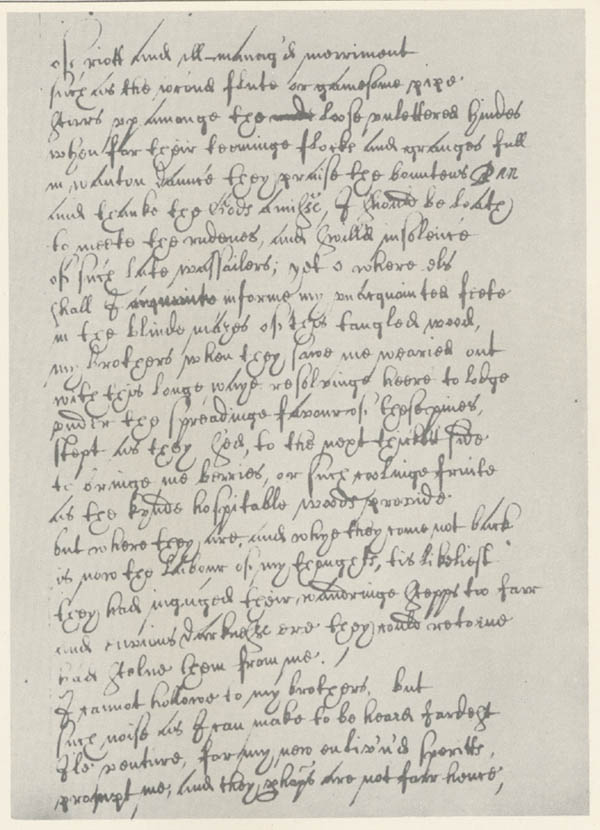 of riott and ill-manag'd merriment
such as the jocund flute or gamesome pipe
sturs up amonge the loose unlettered hindes
when for their teeminge flocks and granges full
in wanton daunce they praise the bounteus Pan
and thanke the Gods amisse, I should be loath
to meete the rudenes, and swill'd insolence
of such late wassailers; yet o where els
shall I acquainte informe my unacquainted feete
in the blinde mazes of this tangled wood,
my brothers when they sawe me wearied out
with this longe waye resolvinge heere to lodge
under the spreadinge favour of these pines,
stept as they sed, to the next thickett side
to bringe me berries, or such coolinge fruite
as the kynde hospitable woods provide
but where they are, and whye they come not back
is now the labour of my thoughts, tis likeliest
they had ingaged their wandringe stepps too farr
and envious darknesse ere they could retorne
had stolne them from me. /
I cannot hollowe to my brothers, but
such noise as I can make to be heard fardest
Ile venture, for my new enliv'n'd speritts,
prompt me, and they phaps are not farr hence,